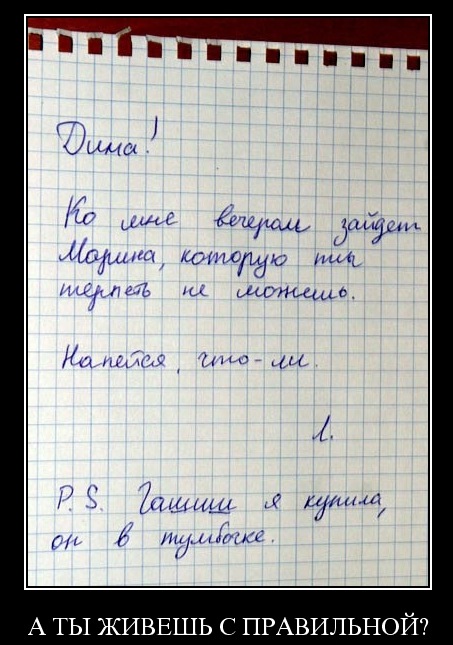 Дима!
Ко мне вечером зайдет
Марина, которую ты
терпеть не можешь.
Напейся, что-ли.
Л.
P.S. Гашиш я купила,
он в тумбочке.
А ТЫ ЖИВЕШЬ С ПРАВИЛЬНОЙ?